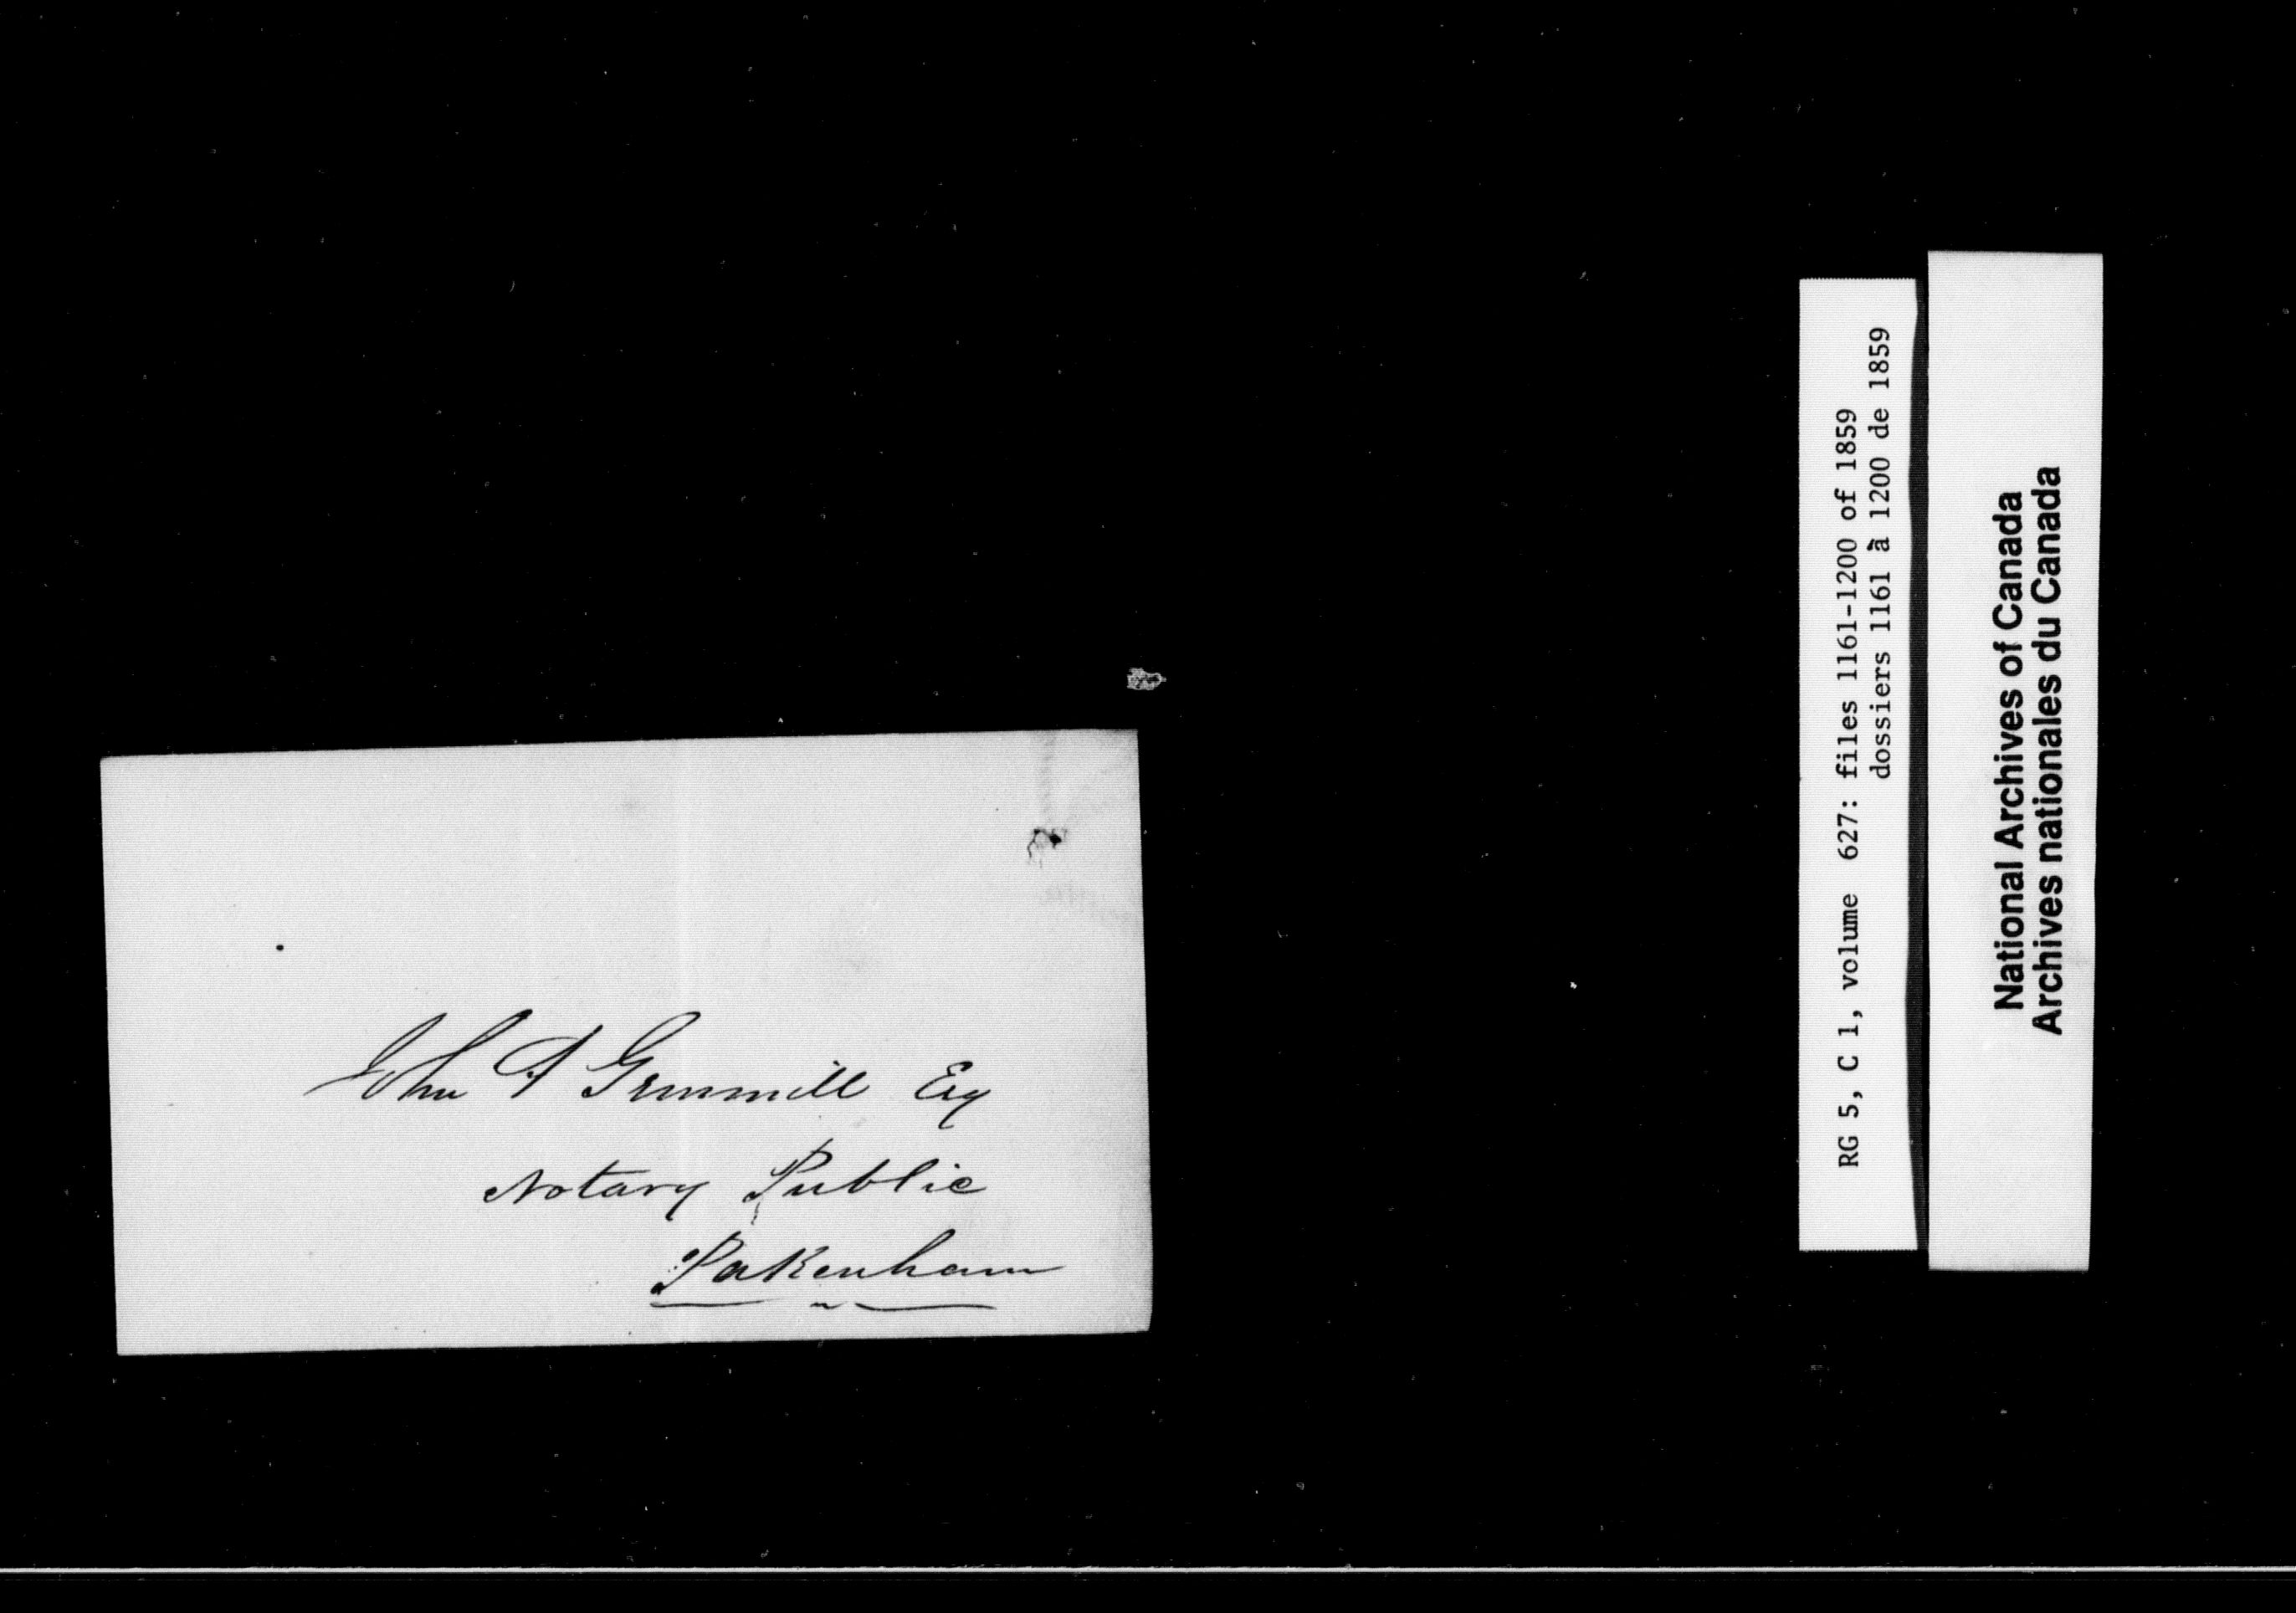 John A Gemmill Esq
Notary Public
Pakenham
RG 5, C 1, volume 627: files 1161-1200 of 1859
dossiers 1161 à 1200 de 1859
National Archives of Canada
Archives nationales du Canada